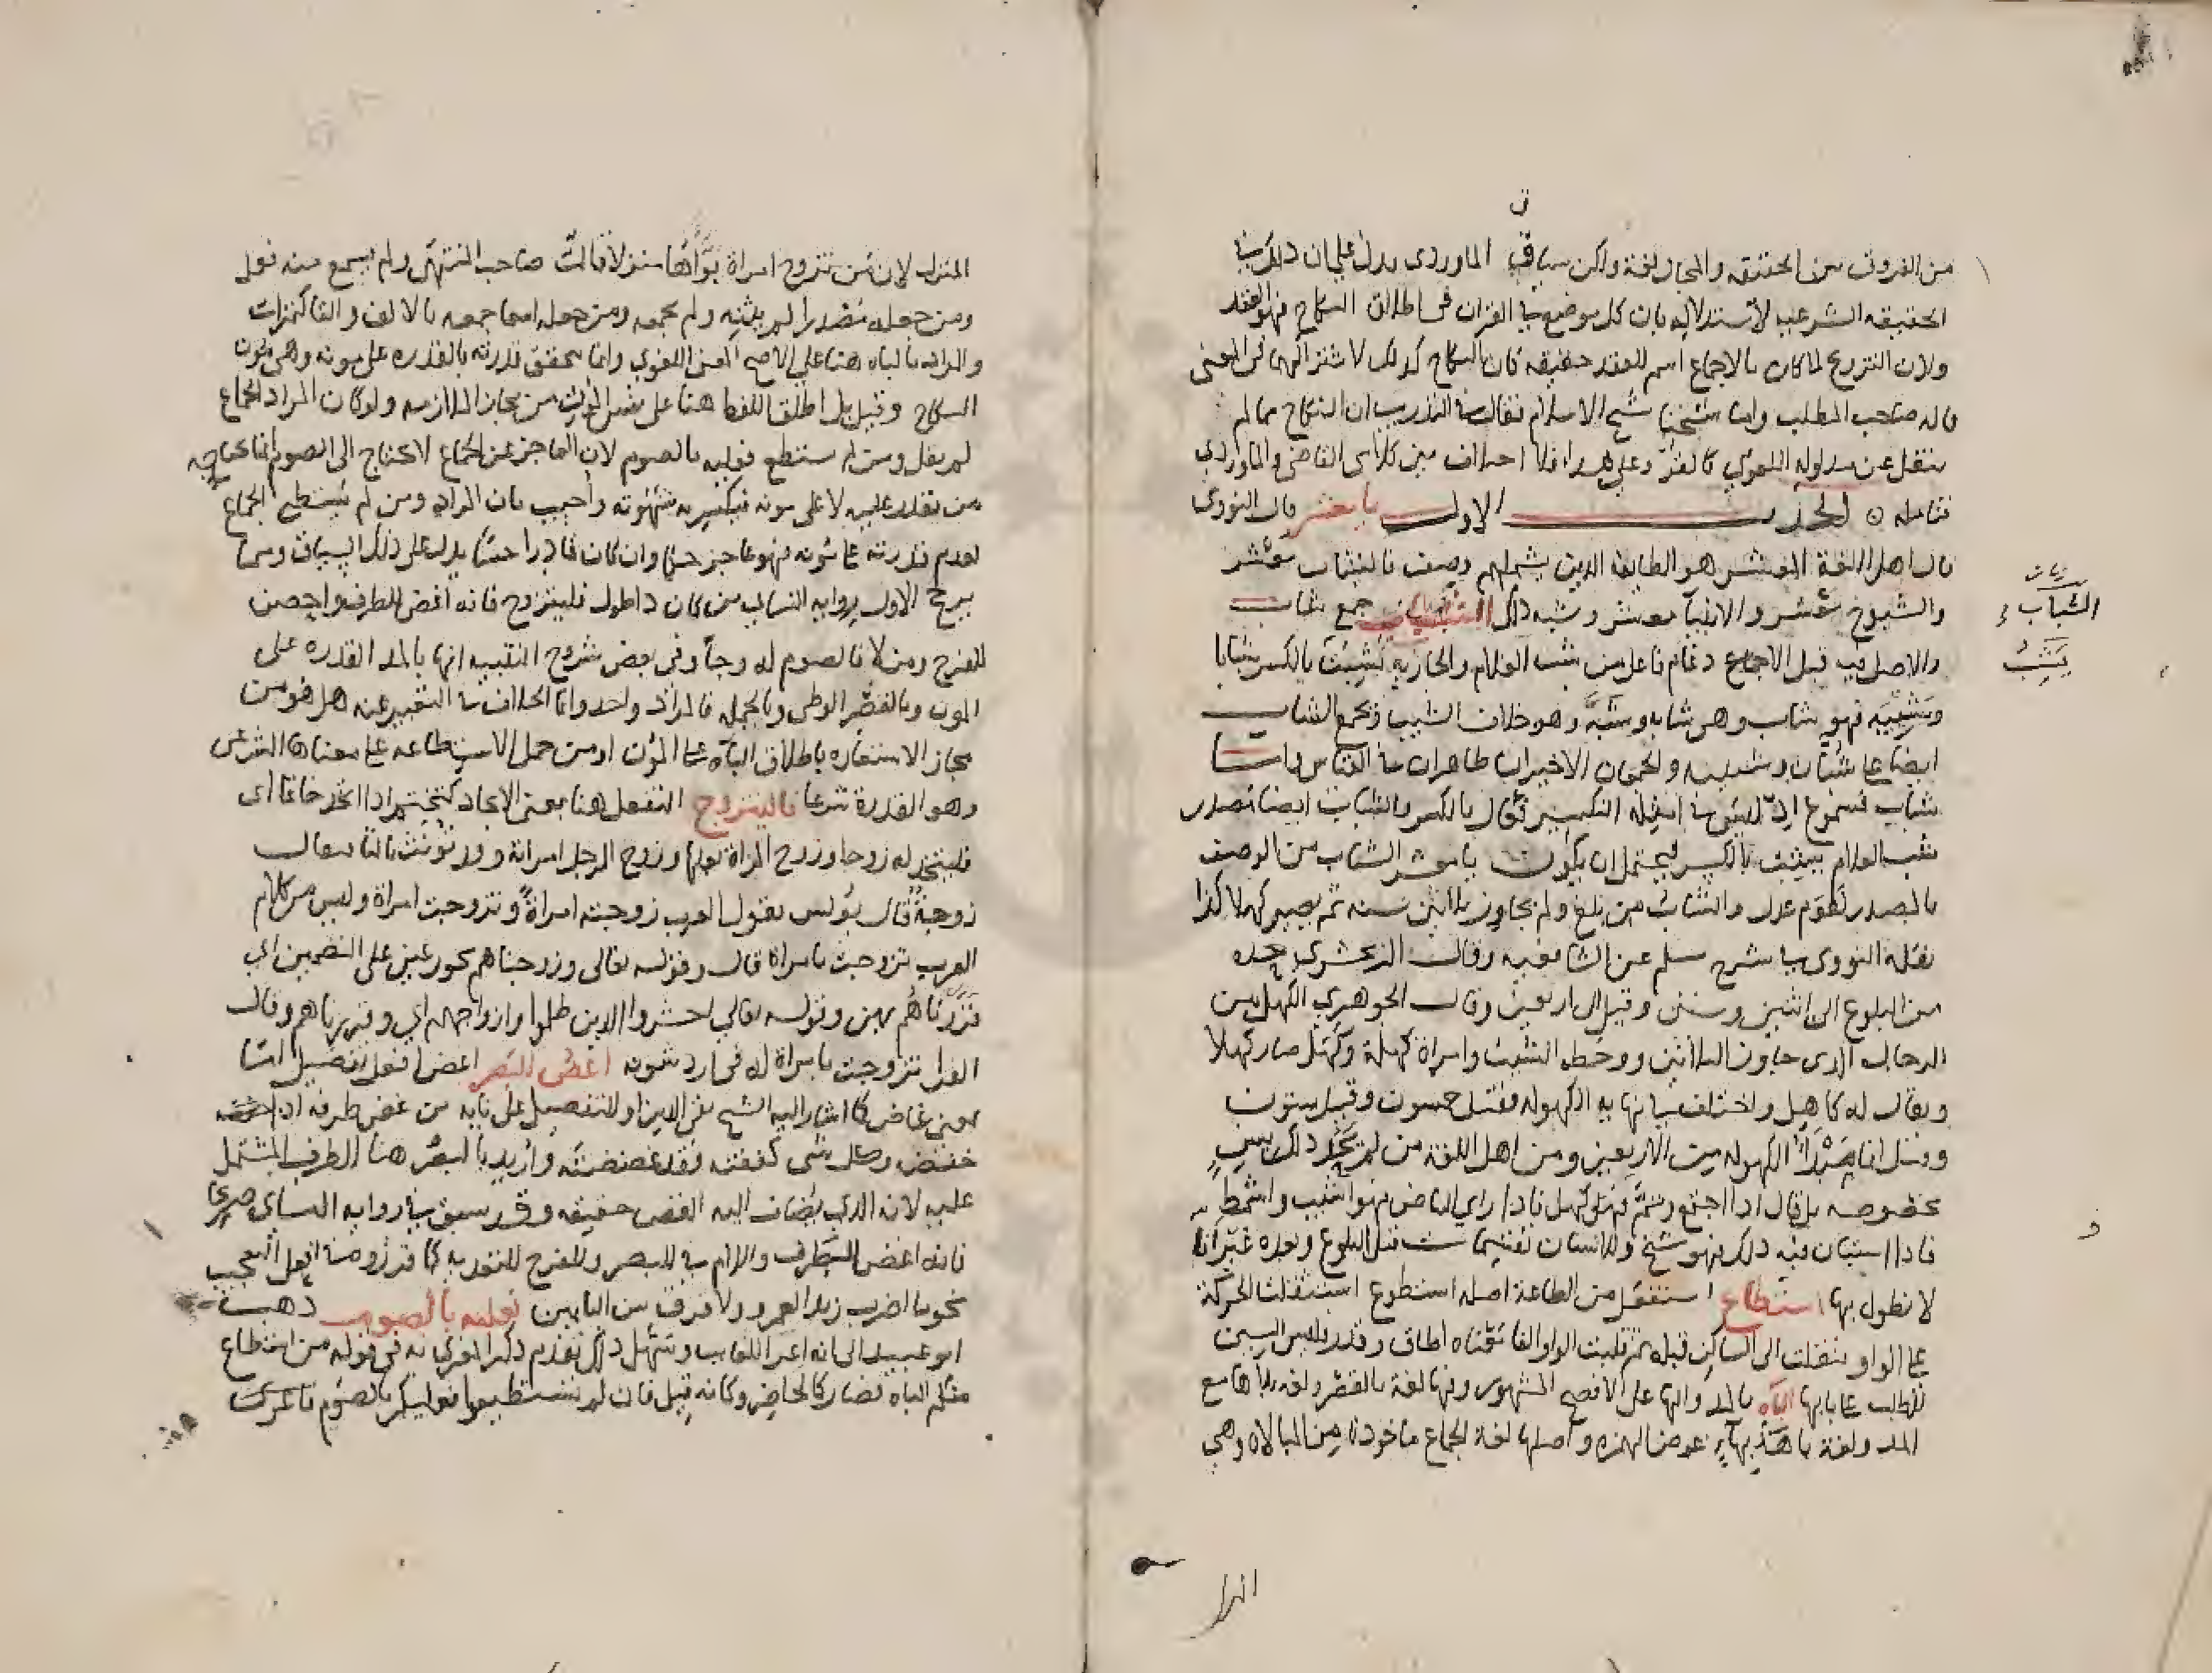 من الفروق بين الحقيقة والمجاز لغة ولكن سياق الماوردي يدل على ان ذلك في
الحقيقه الشرعيه لاستدلاله بان كل موضع في القران في اطلاق النكاح فهو العقد
ولان التزويج لما كان بالاجماع اسم للعقد حقيقه كان النكاح كذلك لاشتراكهما في المعنى
قاله صاحب المطلب واما شيخنا شيخ الاسلام فقال في التدريب ان النكاح مما لم
ينقل عن مدلوله اللغوي كالقرء وعلى هذا فلا اختلاف بين كلامى القاضي والماوردي
فتامله الحديث الاول يا معشر قال النووي
قال اهل اللغة المعشر هو الطايفه الذين يشملهم وصف فالشباب معشر
والشيوخ معشر والانبيآ معشر وشبه ذلك الشباب جمع شاب
والاصل فيه قبل الادغام فاعل من شب الغلام والجاريه يشب بالكسر شبابا
وشبيبه فهو شاب وهي شابه وشبة وهو خلاف الشيب ويجمع الشاب
ايضا على شبان وشببه والجمعان الاخيران ظاهران في القياس واما
شباب فمسموع اذ ليس في امثله التكسير فعال بالكسر والشباب ايضا مصدر
شب الغلام يشب بالكسر فيحتمل ان يكون يا معشر الشباب من الوصف
بالمصدر كقوم عدل والشاب من بلغ ولم يجاوز ثلاثين سنه ثم يصير كهلا كذا
نقله النووي في شرح مسلم عن الشافعيه وقال الزمخشري حده
من البلوغ الى اثنين وستين وقيل الى اربعين وقال الجوهري الكهل من
الرجال الذي جاوز الثلاثين ووخطه الشيب وامراة كهلة وكهل صار كهلا
ويقال له كاهل واختلف في انهايه الكهوله فقيل خمسون وقيل ستون
وقيل انما مبدأ الكهوله من الاربعين ومن اهل اللغة من لم يحد ذلك بسن
مخصوصه بل قال اذا اجتمع وتم فهو كهل فاذا راى البياض فهو اشيب واشمط
فاذا استبان فيه ذلك فهو شيخ وللانسان تقسيمات قبل البلوغ وبعده غير انا
لا نطول بها استطاع استفعل من الطاعة اصله استطوع استثقلت الحركة
على الواو فنقلت الى الساكن قبله ثم قلبت الواو الفا معناه اطاق وقدر فليس السين
للطلب على بابها البآه بالمد والها على الافصح المشهور وفيها لغة بالقصر ولغه بلا ها مع
المد ولغة باهة بهاء عوض الهمزه واصلها لغة الجماع ماخوذة من المباءة وهي
بيان
الشباب
يشب
المنزل
المنزل لان من تزوج امراة بوأها منزلا قال صاحب المنتهى ولم يسمع منه فعل
ومن جعله مصدرا لم يثنه ولم يجمعه ومن جعله اسما جمعه بالالف والتا كتمرات
والمراد بالباه هنا على الاصح المعنى اللغوي وانما يتحقق قدرته بالقدره على مونه وهي مون
النكاح وقيل بل اطلق اللفظ هنا على نفس المؤن من مجاز الملازمه ولو كان المراد الجماع
لم يقل ومن لم يستطع فعليه بالصوم لان العاجز عن الجماع لا يحتاج الى الصوم انما يحتاجه
من يقدر عليه لا على مونه فيكسر به شهوته واجيب بان المراد ومن لم يستطع الجماع
لعدم قدرته على مونه فهو عاجز حكما وان كان قادرا حسا يدل على ذلك السياق ومما
يرجح الاول روايه النسائي من كان ذا طول فليتزوج فانه اغض للطرف واحصن
للفرج ومن لا فالصوم له وجآ وفي بعض شروح التنبيه انها بالمد القدره على
المون وبالقصر الوطي وبالجمله فالمراد واحد وانما الخلاف في التعبير عنه هل هو من
مجاز الاستعاره باطلاق الباه على المؤن او من حمل الاستطاعه على معناها الشرعي
وهو القدرة شرعا فاليتزوج التفعل هنا بمعنى الاتخاد كتختم اذا اتخذ خاتما اى
فليتخذ له زوجا وزوج المراة بعلها وزوج الرجل امراته وقد تؤنث بالتا فيقال
زوجة قال يونس يقول العرب زوجته امراة وتزوجت امراة وليس من كلام
العرب تزوجت بامراة قال وقوله تعالى وزوجناهم بحور عين على التضمين اي
قرناهم بهن وقوله تعالى احشروا الذين ظلموا وازواجهم اي وقرناهم وقال
الفرا تزوجت بامراة لغه في ازد شنوه اغض للبصر اغض افعل تفضيل اما
بمعنى غاض كما اشار اليه الشيخ تقي الدين او للتفضيل على بابه من غض طرفه اذا
خفضه وكل شي كففته فقد غضضته واريد بالبصر هنا الطرف المشتمل
عليه لانه الذي يضاف اليه الغض حقيقه وقد سبق في روايه النسائي صريحا
فانه اغض للطرف واللام في للبصر وللفرج للتعديه كما قرروه في افعل التعجب
نحو ما اضرب زيدا لعمرو ولا فرق بين البابين فعليه بالصوم ذهب
ابو عبيد الى انه اغرا للغايب وسهل ذلك تقدم ذكر المغرى به في قوله من استطاع
منكم الباه فصار كالحاضر وكانه قيل فان لم تستطيعوا فعليكم بالصوم